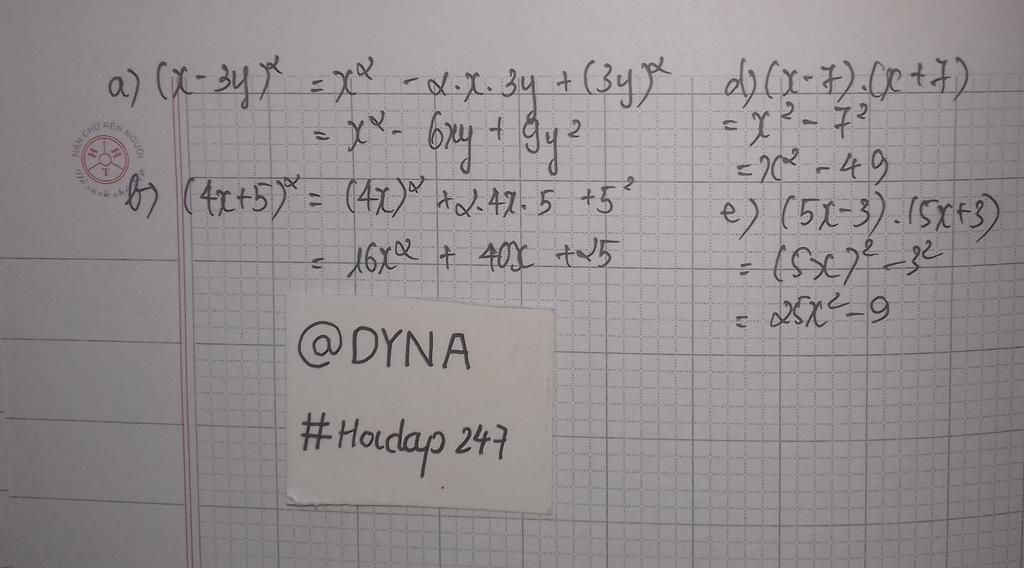 a) (x - 3y)² = x² - 2.x.3y + (3y)²
= x² - 6xy + 9y²
b) (4x+5)² = (4x)² + 2.4x.5 + 5²
= 16x² + 40x + 25
d) (x-7).(x+7)
= x² - 7²
= x² - 49
e) (5x-3).(5x+3)
= (5x)² - 3²
= 25x² - 9
@DYNA
#Hoidap 247